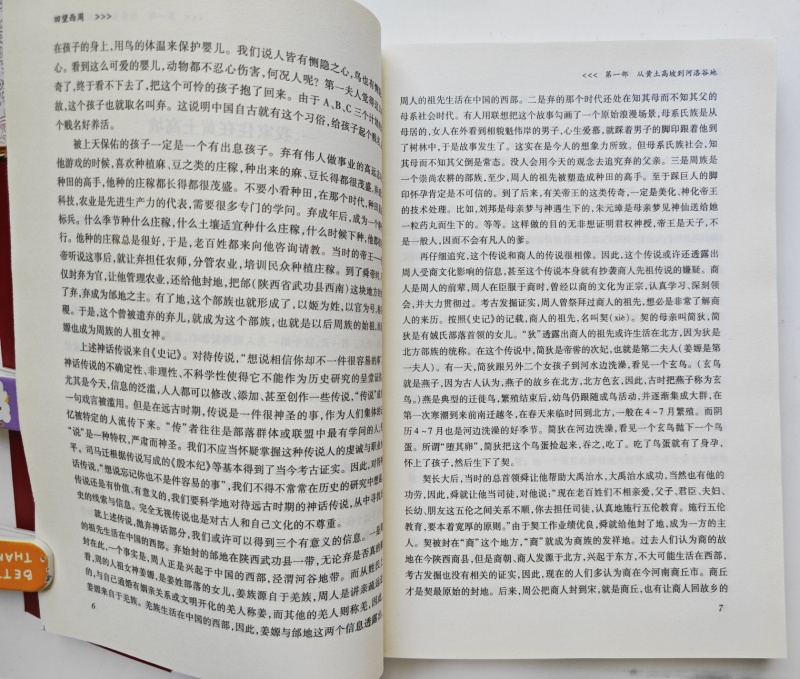 回望西周 >>>
在孩子的身上，用鸟的体温来保护婴儿。我们说人皆有恻隐之心，鸟也有恻隐
心。看到这么可爱的婴儿，动物都不忍心伤害，何况人呢？第一夫人觉得
奇了，终于看不下去了，把这个可怜的孩子抱了回来。由于A、B、C三个计
故，这个孩子也就取名叫弃。这说明中国自古就有这个习俗，给孩子起个
个贱名好养活。
被上天保佑的孩子一定是一个有出息孩子。弃有伟人做事业的高远
他游戏的时候，喜欢种植麻、豆之类的庄稼，种出来的麻、豆长得都很茂盛，
种田的高手，他种的庄稼都长得都很茂盛。不要小看种田，在那个时代，种田
科技，农业是先进生产力的代表，需要很多专门的学问。弃成年后，成为一个
标兵。什么季节种什么庄稼，什么土壤适宜种什么庄稼，什么时候下种，他都
行。他种的庄稼总是很好，于是，老百姓都来向他咨询请教。当时的帝王
帝听说这事后，就让弃担任农师，分管农业，培训民众种植庄稼。到了舜帝
仅封弃为官，让他管理农业，还给他封地，把邰（陕西省武功县西南）这块地方
了弃，弃成为邰地之主。有了地，这个部族也就形成了，以姬为姓，以官为号，
稷。于是，这个曾被遗弃的弃儿，就成为这个部族，也就是以后周族的始祖，
嫄也成为周族的人祖女神。
上述神话传说来自《史记》。对待传说，“想说相信你却不一件很容易的
神话传说的不确定性、非理性、不科学性使得它不能作为历史研究的呈堂证
尤其是今天，信息的泛滥，人人都可以修改、添加、甚至创作一些传说，“传说”
一句戏言被滥用。但是在远古时期，传说是一件很神圣的事，作为人们集体的
忆被特定的人流传下来。“传”者往往是部落群体或联盟中最有学问的人
“说”是一种特权，严肃而神圣。我们不应当怀疑掌握这种传说人的虔诚与职业
平。司马迁根据传说写成的《殷本纪》等基本得到了当今考古证实。因此，对待
话传说，“想说忘记你也不是件容易的事”，我们不得不常常在历史的研究中想起
传说还是有价值、有意义的，我们要科学地对待远古时期的神话传说，从中寻找
史的线索与信息。完全无视传说也是对古人和自己文化的不尊重。
就上述传说，抛弃神话部分，我们或许可以得到三个有意义的信息。一是
的祖先生活在中国的西部。弃始封的邰地在陕西武功县一带，无论弃是否真的
封在此，一个事实是，周人正是兴起于中国的西部，泾渭河谷地带。而从姓氏
看，周的人祖女神姜嫄，是姜姓部落的女儿，姜族源自于羌族，周人是讲亲疏远近
的，与自己通婚有姻亲关系或文明开化的羌人称姜，而其他的羌人则称羌，因此，
姜嫄来自于羌族。羌族生活在中国的西部，因此，姜嫄与邰地这两个信息透露出，
6
<<< 第一部 从黄土高坡到河洛谷地
周人的祖先生活在中国的西部。二是弃的那个时代还处在只知其母而不知其父的
母系社会时代。有人用联想把这个故事勾画了一个原始浪漫场景，母系氏族是从
母居的，女人在外看到相貌魁伟岸的男子，心生爱慕，就踩着男子的脚印跟着他到
了树林中，于是故事发生了。这实在是今人的想象力所致。但母系氏族社会，知
其母而不知其父倒是常态。没人会用今天的观念去追究弃的父亲。三是周族是
一个崇尚农耕的部落，至少，周人的祖先被塑造成种田的高手。至于踩巨人的脚
印怀孕肯定是不可信的。到了后来，有关帝王的这类传奇，一定是美化、神化帝王
的技术处理。比如，刘邦是母亲梦与神遇生下的，朱元璋是母亲梦见神仙送给她
一粒药丸而生下的。等等。这样做的目的无非想证明君权神授，帝王是天子，不
是一般人，因而不会有凡人的爹。
再仔细追究，这个传说和商人的传说很相像。因此，这个传说或许还透露出
周人受商文化影响的信息，甚至这个传说本身就有抄袭商人先祖传说的嫌疑。商
人是周人的前辈，周人在臣服于商时，曾经以商的文化为正宗，认真学习，深刻领
会，并大力贯彻过。考古发掘证实，周人曾祭拜过商人的先祖，想必是非常了解商
人的来历。按照《史记》的记载，商人的祖先，名叫契（xiè）。契的母亲叫简狄，简
狄是有娀氏部落首领的女儿。“狄”透露出商人的祖先或许生活在北方，因为狄是
北方部族的统称。在这个传说中，简狄是帝喾的次妃，也就是第二夫人（姜嫄是第
一夫人）。有一天，简狄跟另外二个女孩子到河水边洗澡，看见一个玄鸟。（玄鸟
就是燕子，因为古人认为，燕子的故乡在北方，北方色玄，因此，古时把燕子称为玄
鸟。）燕是典型的迁徒鸟，繁殖结束后，幼鸟仍跟随成鸟活动，并逐渐集成大群，在
第一次寒潮到来前南迁越冬，在春天来临时回到北方，一般在4～7月繁殖。而阴
历4～7月也是河边洗澡的好季节。简狄在河边洗澡，看见一个玄鸟抛下一个鸟
蛋。所谓“堕其卵”，简狄把这个鸟蛋捡起来，吞之，吃了。吃了鸟蛋就有了身孕，
怀上了孩子，然后生下了契。
契长大后，当时的总首领舜让他帮助大禹治水，大禹治水成功，当然也有他的
功劳，因此，舜就让他当司徒，对他说：“现在老百姓们不相亲爱，父子、君臣、夫妇、
长幼、朋友这五伦之间关系不顺，你去担任司徒，认真地施行五伦教育。施行五伦
教育，要本着宽厚的原则。”由于契工作业绩优良，舜就给他封了地，成为一方的主
人。契被封在“商”这个地方，“商”就成为商族的发祥地。过去人们认为商的故
地在今陕西商县，但是商朝、商人发源于北方，兴起于东方，不大可能生活在西部，
考古发掘也没有相关的证实，因此，现在的人们多认为商在今河南商丘市。商丘
才是契最原始的封地。后来，周公把商人封到宋，就是商丘，也有让商人回故乡的
7
BETT
THAN